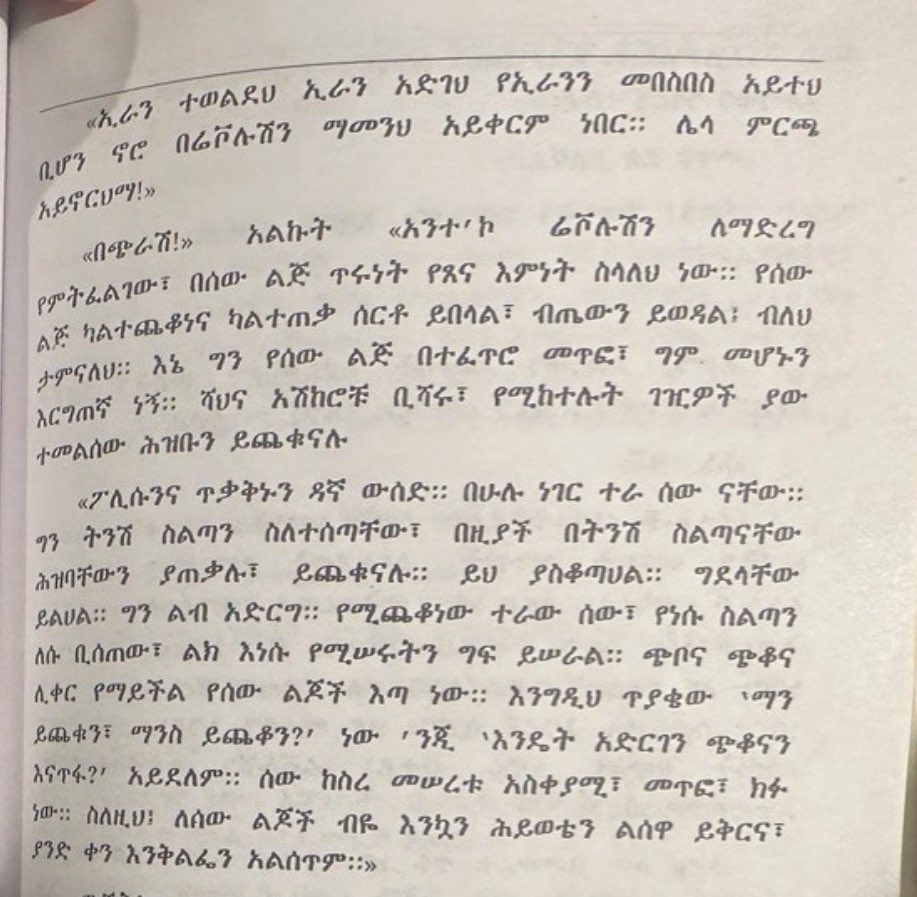 «ኢራን ተወልደህ ኢራን አድገህ የኢራንን መበስበስ አይተህ
ቢሆን ኖሮ በሬቮሉሽን ማመንህ አይቀርም ነበር። ሌላ ምርጫ
አይኖርህማ!»
«በጭራሽ!» አልኩት «አንተ'ኮ ሬቮሉሽን ለማድረግ
የምትፈልገው፣ በሰው ልጅ ጥሩነት የጸና እምነት ስላለህ ነው። የሰው
ልጅ ካልተጨቆነና ካልተጠቃ ሰርቶ ይበላል፣ ብጤውን ይወዳል፤ ብለህ
ታምናለህ። እኔ ግን የሰው ልጅ በተፈጥሮ መጥፎ፣ ግም መሆኑን
እርግጠኛ ነኝ። ሻህና አሽከሮቹ ቢሻሩ፣ የሚከተሉት ገዢዎች ያው
ተመልሰው ሕዝቡን ይጨቁናሉ
«ፖሊሱንና ጥቃቅኑን ዳኛ ውሰድ። በሁሉ ነገር ተራ ሰው ናቸው።
ግን ትንሽ ስልጣን ስለተሰጣቸው፣ በዚያች በትንሽ ስልጣናቸው
ሕዝባቸውን ያጠቃሉ፣ ይጨቁናሉ። ይህ ያስቆጣሀል። ግደላቸው
ይልሀል። ግን ልብ አድርግ። የሚጨቆነው ተራው ሰው፣ የነሱ ስልጣን
ለሱ ቢሰጠው፣ ልክ እነሱ የሚሠሩትን ግፍ ይሠራል። ጭቦና ጭቆና
ሊቀር የማይችል የሰው ልጆች እጣ ነው። እንግዲህ ጥያቄው 'ማን
ይጨቁን፣ ማንስ ይጨቆን?' ነው 'ንጂ 'እንዴት አድርገን ጭቆናን
እናጥፋ?' አይደለም። ሰው ከስረ መሠረቱ አስቀያሚ፣ መጥፎ፣ ክፉ
ነው። ስለዚህ፤ ለሰው ልጆች ብዬ እንኳን ሕይወቴን ልሰዋ ይቅርና፣
ያንድ ቀን እንቅልፌን አልሰጥም።»